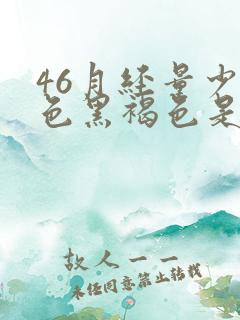 46月经量少
色黑褐色是
故人一一
未经同意禁止转载